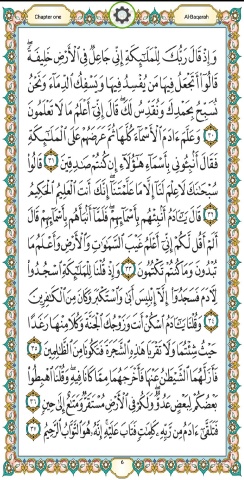 Chapter one
Al-Baqarah
وَإِذْ قَالَ رَبُّكَ لِلْمَلَٰٓئِكَةِ إِنِّى جَاعِلٌ فِى ٱلْأَرْضِ خَلِيفَةً
قَالُوٓا۟ أَتَجْعَلُ فِيهَا مَن يُفْسِدُ فِيهَا وَيَسْفِكُ ٱلدِّمَآءَ وَنَحْنُ
نُسَبِّحُ بِحَمْدِكَ وَنُقَدِّسُ لَكَ قَالَ إِنِّىٓ أَعْلَمُ مَا لَا تَعْلَمُونَ
٣٠ وَعَلَّمَ ءَادَمَ ٱلْأَسْمَآءَ كُلَّهَا ثُمَّ عَرَضَهُمْ عَلَى ٱلْمَلَٰٓئِكَةِ
فَقَالَ أَنۢبِـُٔونِى بِأَسْمَآءِ هَٰٓؤُلَآءِ إِن كُنتُمْ صَٰدِقِينَ ٣١ قَالُوا۟
سُبْحَٰنَكَ لَا عِلْمَ لَنَآ إِلَّا مَا عَلَّمْتَنَآ إِنَّكَ أَنتَ ٱلْعَلِيمُ ٱلْحَكِيمُ
٣٢ قَالَ يَٰٓـَٔادَمُ أَنۢبِئْهُم بِأَسْمَآئِهِمْ فَلَمَّآ أَنۢبَأَهُم بِأَسْمَآئِهِمْ قَالَ
أَلَمْ أَقُل لَّكُمْ إِنِّىٓ أَعْلَمُ غَيْبَ ٱلسَّمَٰوَٰتِ وَٱلْأَرْضِ وَأَعْلَمُ مَا
تُبْدُونَ وَمَا كُنتُمْ تَكْتُمُونَ ٣٣ وَإِذْ قُلْنَا لِلْمَلَٰٓئِكَةِ ٱسْجُدُوا۟
لِـَٔادَمَ فَسَجَدُوٓا۟ إِلَّآ إِبْلِيسَ أَبَىٰ وَٱسْتَكْبَرَ وَكَانَ مِنَ ٱلْكَٰفِرِينَ
٣٤ وَقُلْنَا يَٰٓـَٔادَمُ ٱسْكُنْ أَنتَ وَزَوْجُكَ ٱلْجَنَّةَ وَكُلَا مِنْهَا رَغَدًا
حَيْثُ شِئْتُمَا وَلَا تَقْرَبَا هَٰذِهِ ٱلشَّجَرَةَ فَتَكُونَا مِنَ ٱلظَّٰلِمِينَ ٣٥
فَأَزَلَّهُمَا ٱلشَّيْطَٰنُ عَنْهَا فَأَخْرَجَهُمَا مِمَّا كَانَا فِيهِ وَقُلْنَا ٱهْبِطُوا۟
بَعْضُكُمْ لِبَعْضٍ عَدُوٌّ وَلَكُمْ فِى ٱلْأَرْضِ مُسْتَقَرٌّ وَمَتَٰعٌ إِلَىٰ حِينٍ ٣٦
فَتَلَقَّىٰٓ ءَادَمُ مِن رَّبِّهِۦ كَلِمَٰتٍ فَتَابَ عَلَيْهِ إِنَّهُۥ هُوَ ٱلتَّوَّابُ ٱلرَّحِيمُ ٣٧
6